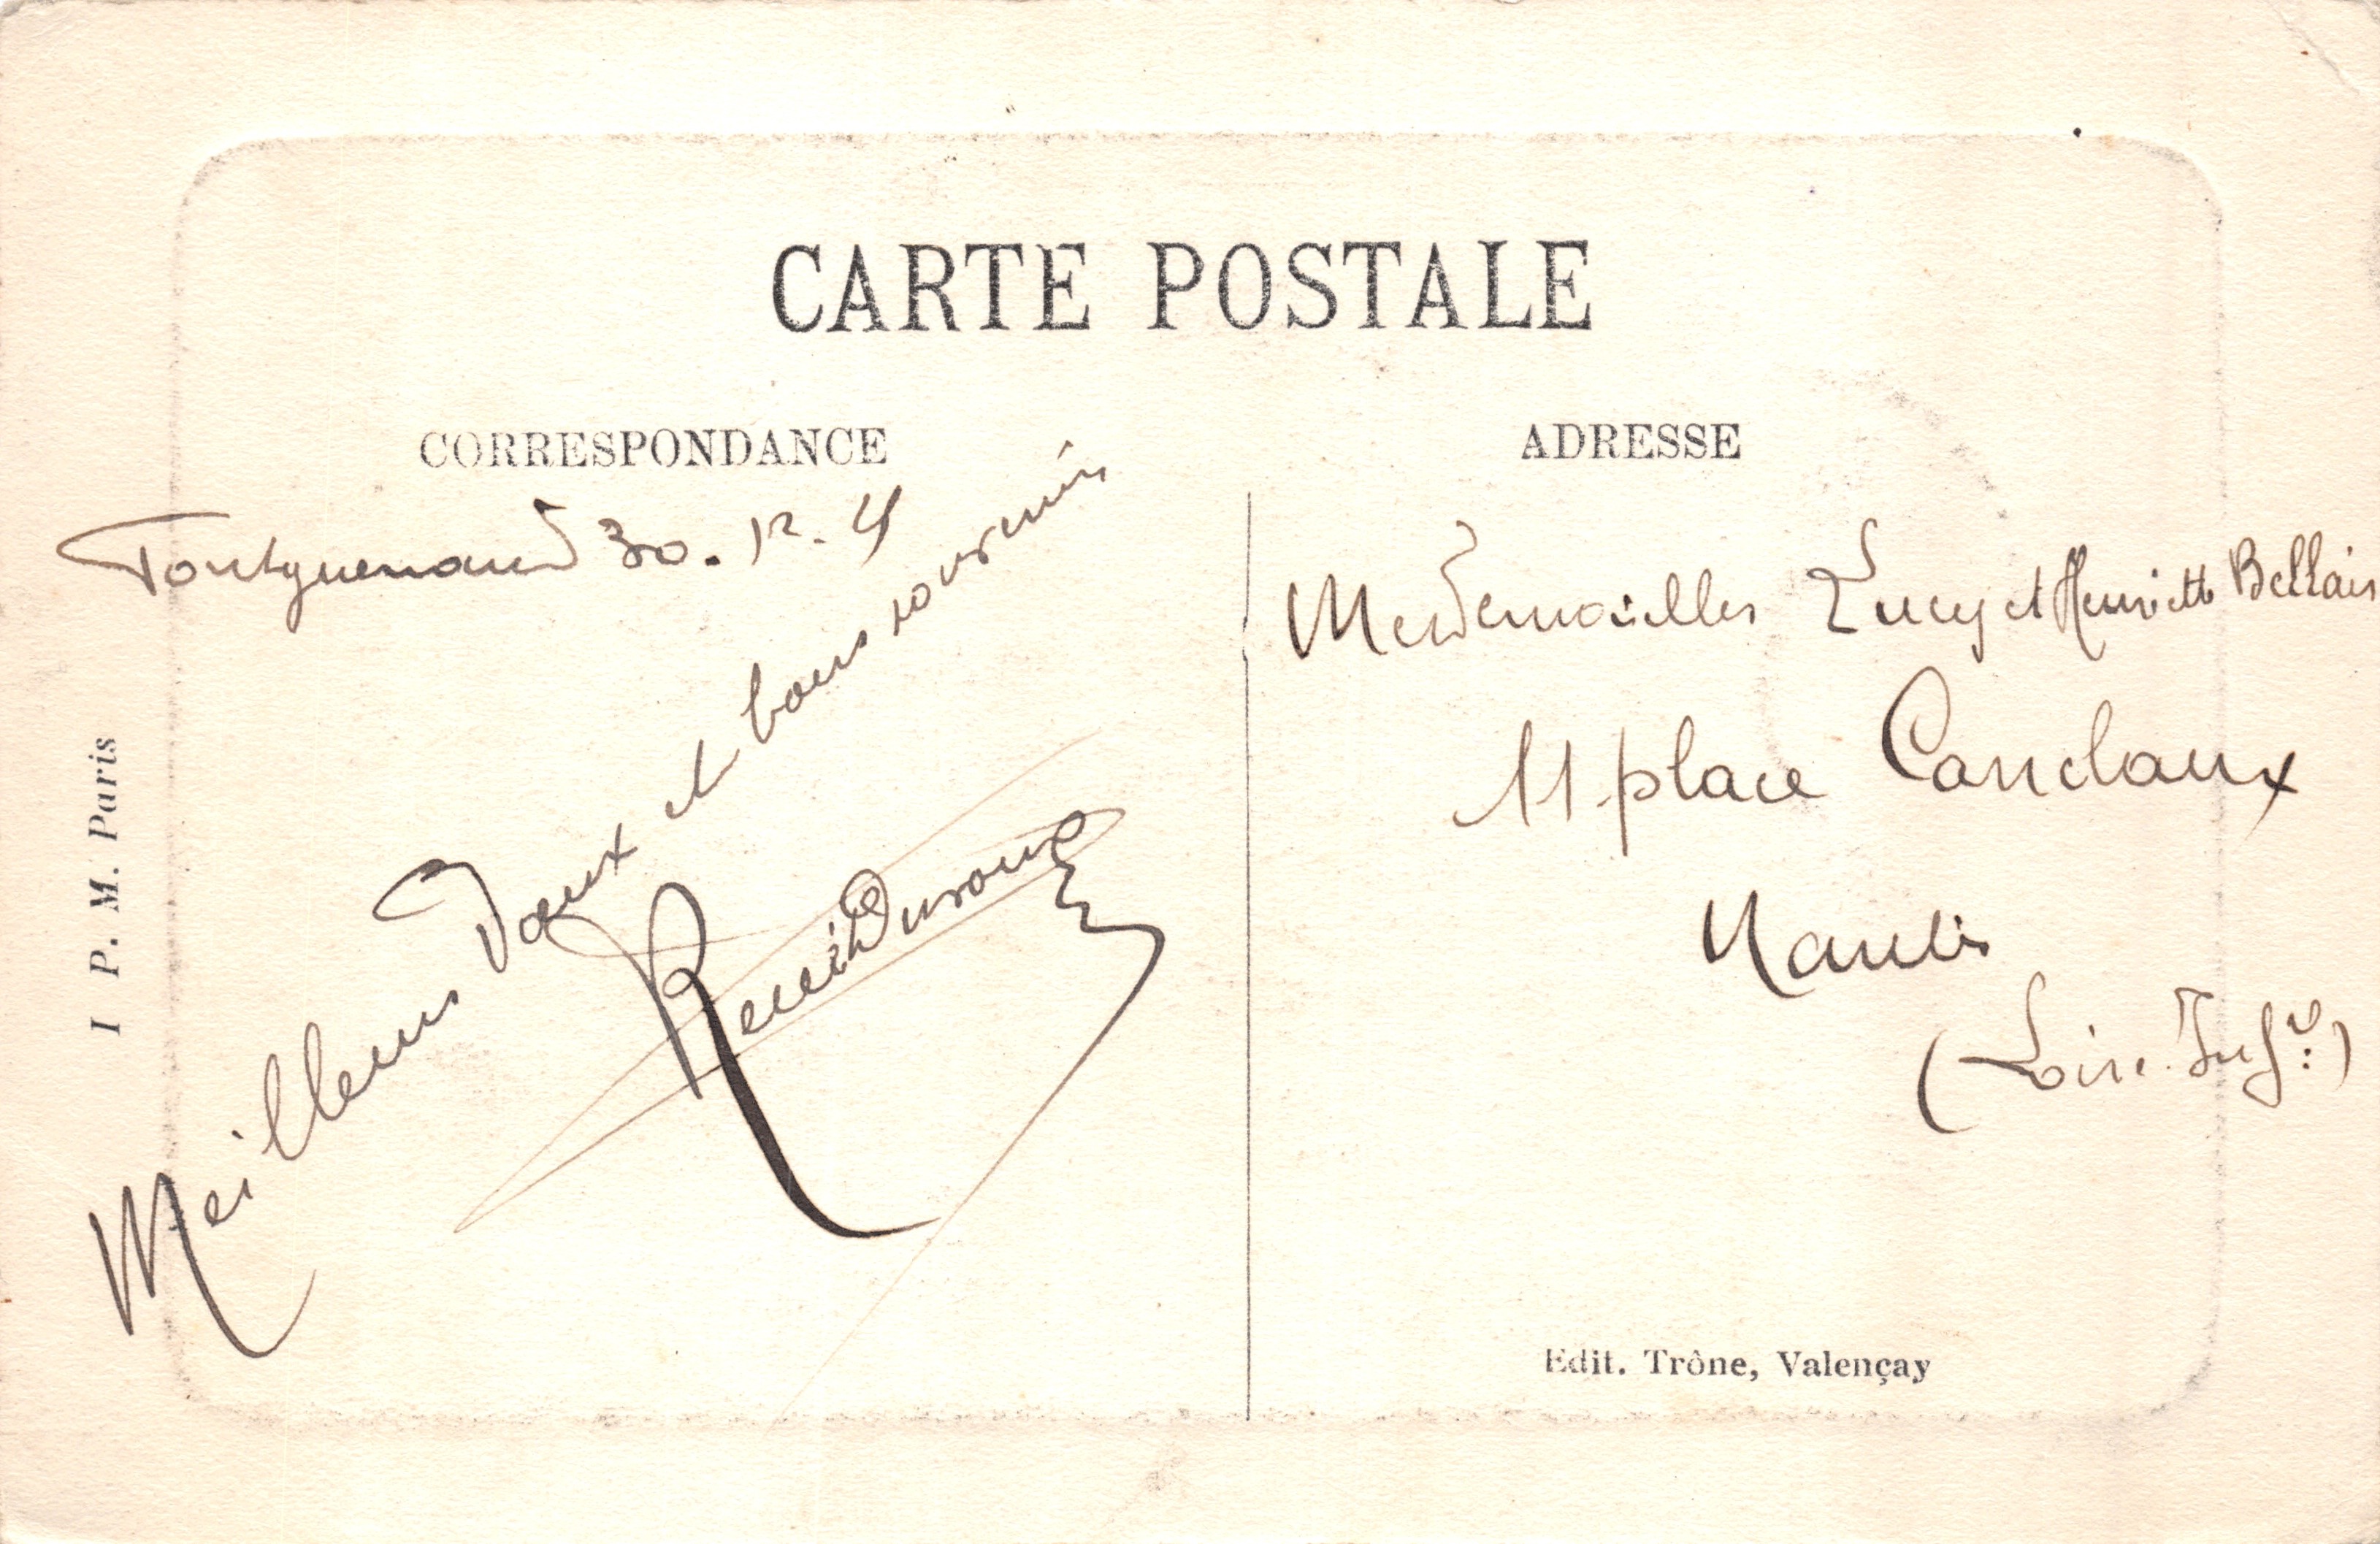 CARTE POSTALE
CORRESPONDANCE
ADRESSE
30.12.
Meilleurs vœux et bons souvenirs
René
Mesdemoiselles Lucy et Henriette Bellais
11 place Canclaux
Nantes
(Loire Infre)
I P. M. Paris
Edit. Trône, Valençay